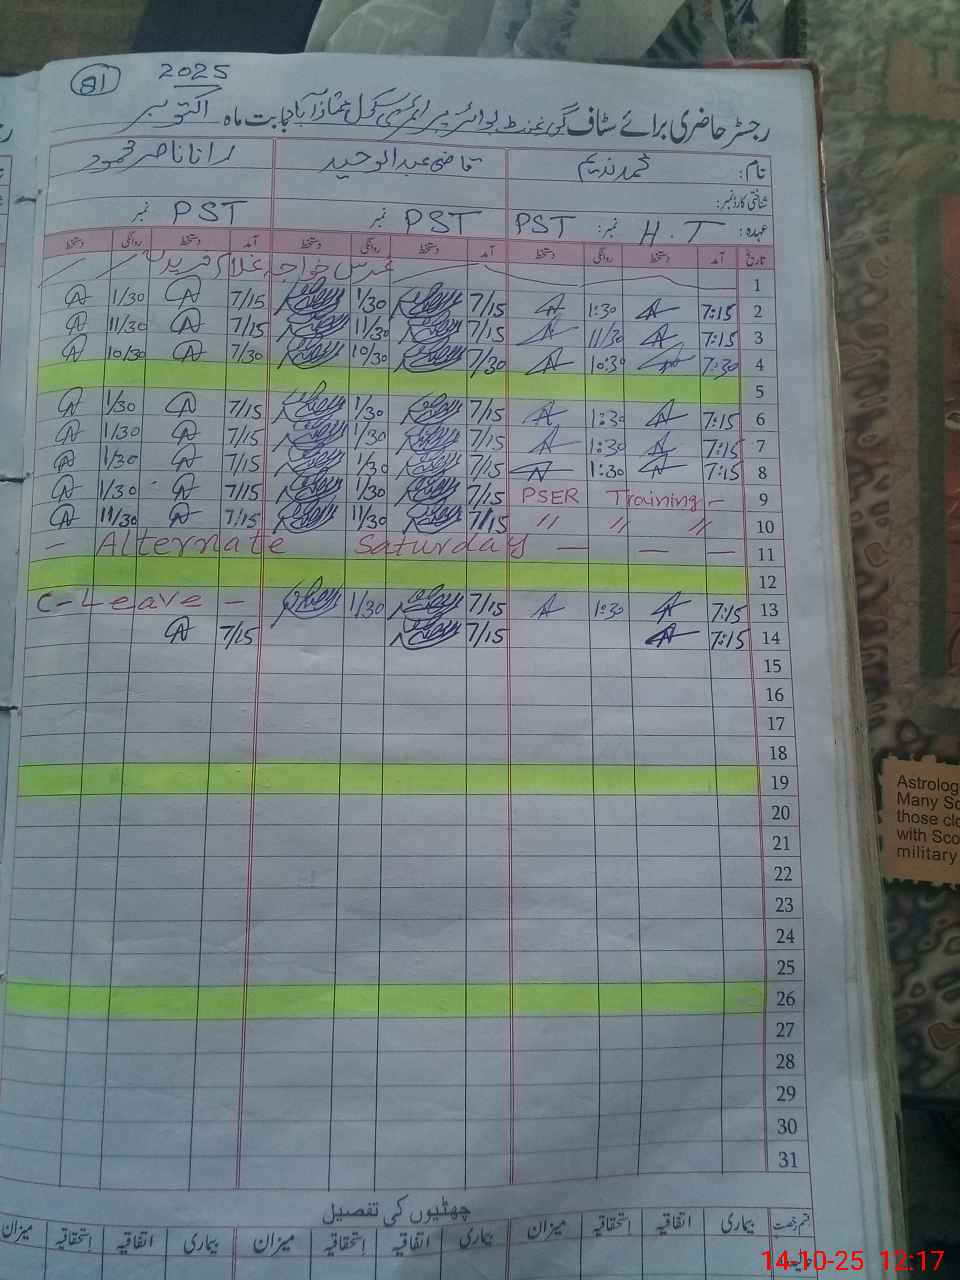 81
2025
رجسٹر حاضری برائے سٹاف گورنمنٹ بوائز پرائمری سکول ممتاز آباد بابت ماہ اکتوبر
نام: محمد ندیم قاضی عبدالوحید رانا ناصر محمود
شناختی کارڈ نمبر:
عہدہ: H.T نمبر: PST PST نمبر PST نمبر
تاریخ آمد دستخط روانگی دستخط آمد دستخط روانگی دستخط آمد دستخط روانگی دستخط
1 عرس خواجہ غلام فرید
2 7:15 1:30 7/15 1/30 7/15 1/30
3 7:15 11/30 7/15 11/30 7/15 11/30
4 7:30 10:30 7/30 10/30 7/30 10/30
5
6 7:15 1:30 7/15 1/30 7/15 1/30
7 7:15 1:30 7/15 1/30 7/15 1/30
8 7:15 1:30 7/15 1/30 7/15 1/30
9 PSER Training - 7/15 1/30 7/15 1/30
10 " " " 7/15 11/30 7:15 11/30
11 - Alternate Saturday - - -
12
13 7:15 1:30 7/15 1/30 C-Leave -
14 7:15 7/15 7/15
15
16
17
18
19
20
21
22
23
24
25
26
27
28
29
30
31
چھٹیوں کی تفصیل
قسم رخصت بیماری اتفاقیہ استحقاقیہ میزان بیماری اتفاقیہ استحقاقیہ میزان بیماری اتفاقیہ استحقاقیہ میزان
Astrolog
Many Sc
those clo
with Sco
military
14-10-25 12:17